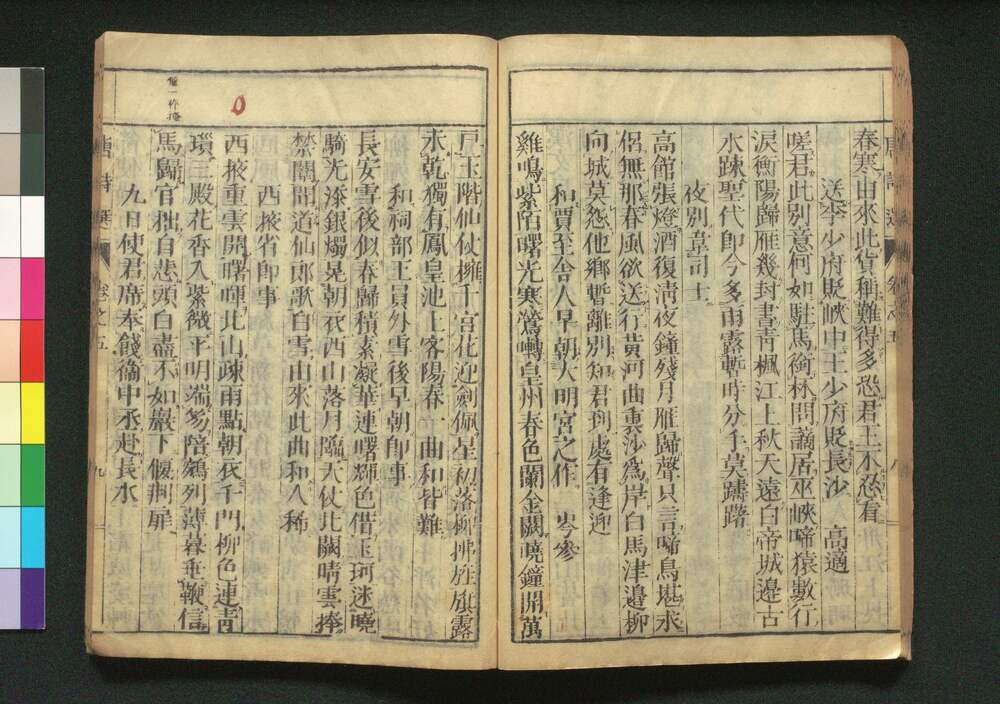 春寒由來此貨稱難得多恐君王不忍看
送李少府貶峽中王少府貶長沙 高適
嗟君此別意何如駐馬銜杯問謫居巫峽啼猿數行
淚衡陽歸雁幾封書青楓江上秋天遠白帝城邊古
木疎聖代卽今多雨露暫時分手莫躊躇
夜別韋司士
高館張燈酒復淸夜鐘殘月雁歸聲只言啼鳥堪求
侶無那春風欲送行黃河曲裏沙爲岸白馬津邊柳
向城莫怨他鄉暫離別知君到處有逢迎
和賈至舍人早朝大明宮之作 岑參
雞鳴紫陌曙光寒鶯囀皇州春色闌金闕曉鐘開萬
唐詩選 卷之五 八
戸玉階仙仗擁千官花迎劍佩星初落柳拂旌旗露
未乾獨有鳳皇池上客陽春一曲和皆難
和祠部王員外雪後早朝卽事
長安雪後似春歸積素凝華連曙輝色借玉珂迷曉
騎光添銀燭晃朝衣西山落月臨天仗北闕晴雲捧
禁闈聞道仙郎歌白雪由來此曲和人稀
西掖省卽事
西掖重雲開曙暉北山疎雨點朝衣千門柳色連靑
瑣三殿花香入紫微平明端笏陪鵷列薄暮垂鞭信
馬歸官拙自悲頭白盡不如巖下偃荆扉
九日使君席奉餞衞中丞赴長水
唐詩選 卷之五 九